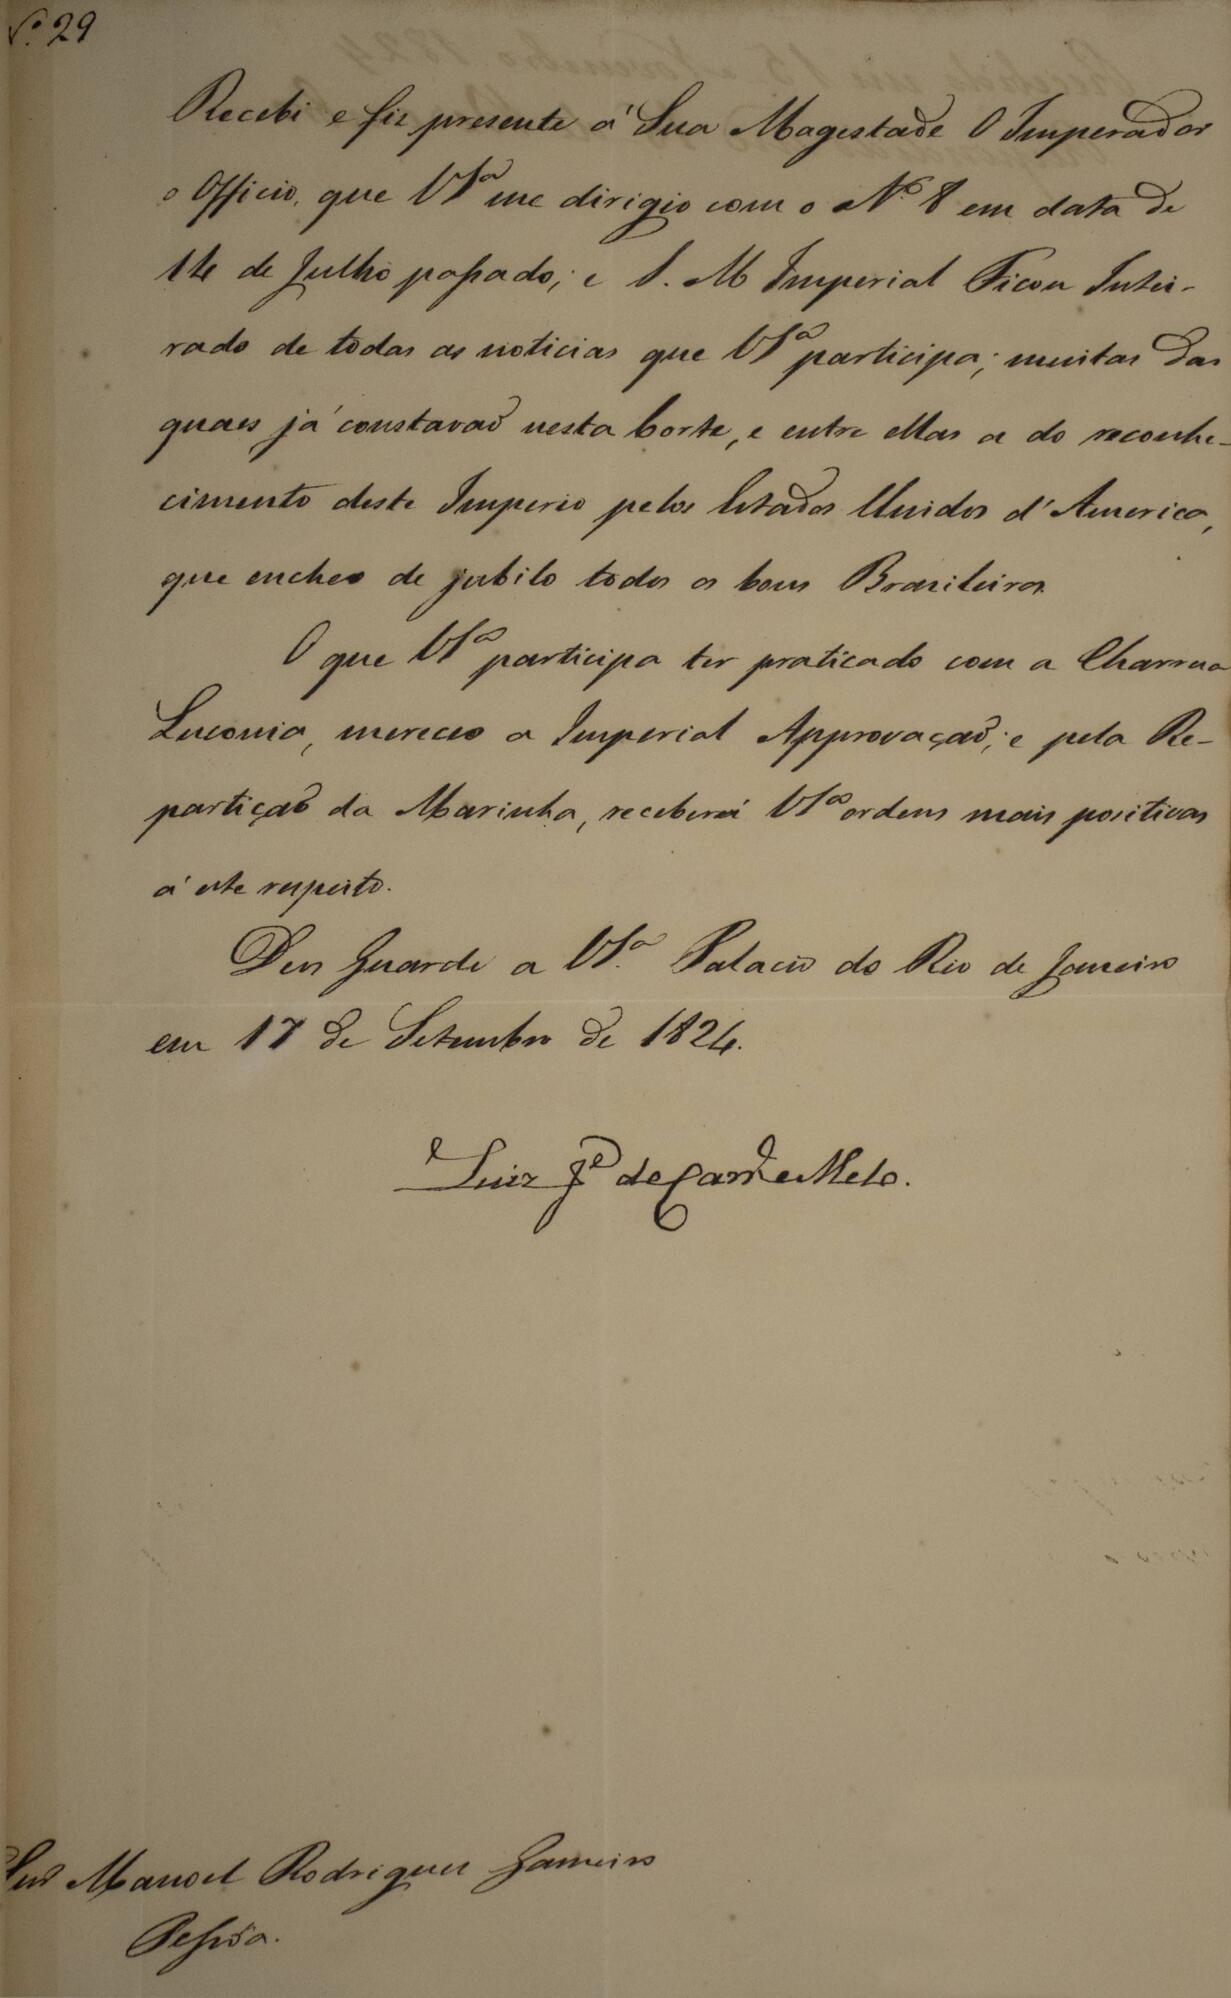 N.º 29
Recebi e fiz presente á Sua Magestade O Imperador
o Officio, que VSª me dirigio com o Nº 8 em data de
14 de Julho passado; e S. M Imperial Ficou Intei-
rado de todas as noticias que VSª participa; muitas das
quaes já constavaõ nesta Corte, e entre ellas a do reconhe-
cimento deste Imperio pelos Estados Unidos d'America,
que encheo de jubilo todos os bons Brasileiros.
O que VSª participa ter praticado com a Charrua
Luconia, mereceo a Imperial Approvaçaõ; e pela Re-
partiçaõ da Marinha, receberá VSª ordens mais positivas
á este respeito.
Deus Guarde a VSª. Palacio do Rio de Janeiro
em 17 de Setembro de 1824.
Luiz Jº de Carvº e Mello.
Snr Manoel Rodrigues Gameiro
Pessôa.